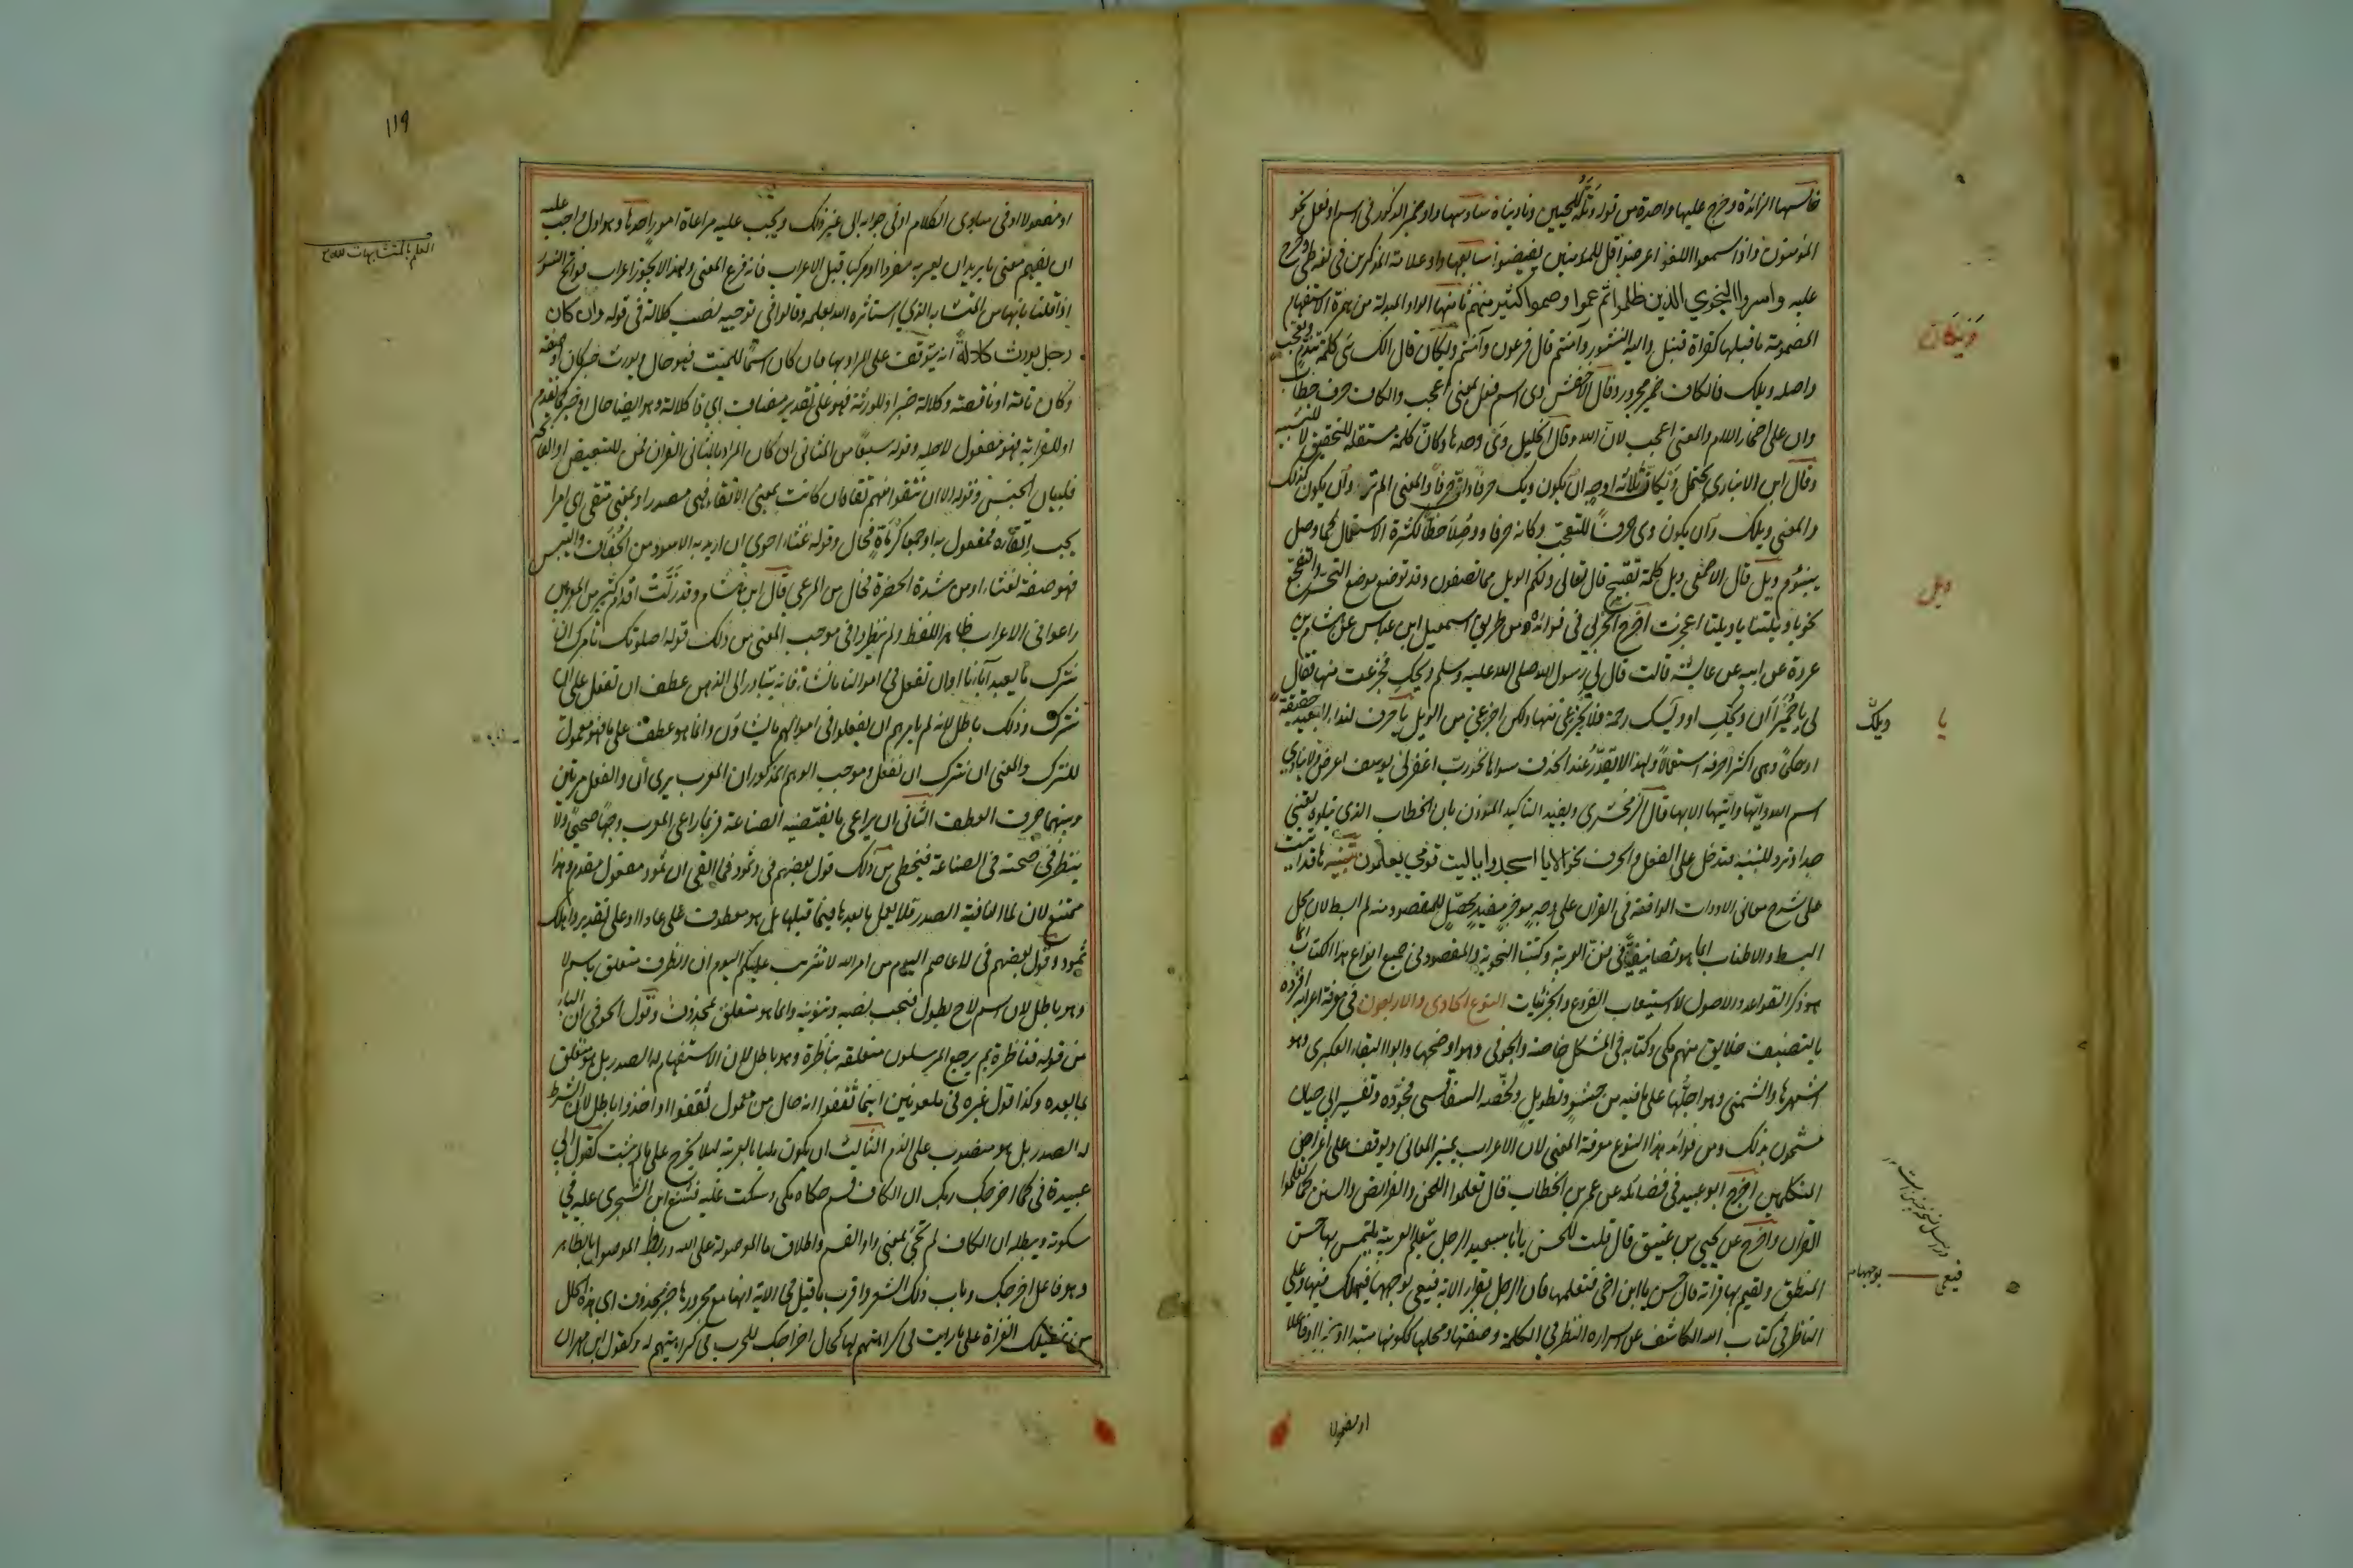 خامسها الزائدة وخرج عليها واحدة من قوله وتله للجبين وناديناه سادسها واو ضمير الذكور في اسم او فعل نحو
المؤمنون واذا سمعوا اللغو اعرضوا قل للمؤمنين يغضوا سابعها واو علامة المذكرين في لغة طي وخرج
عليه واسروا النجوى الذين ظلموا ثم عموا وصموا كثير منهم ثامنها الواو المبدلة من همزة الاستفهام
المضموم ما قبلها كقراءة قنبل واليه النشور وامنتم قال فرعون وآمنتم ويكان قال الكسائي كلمة تندم وتعجب
واصله ويلك فالكاف ضمير مجرور وقال الاخفش وي اسم فعل بمعنى اعجب والكاف حرف خطاب
وان على اضمار اللام والمعنى اعجب لان الله وقال الخليل وي وحدها وكان كلمة مستقلة للتحقيق لا للتشبيه
وقال ابن الانباري يحتمل ويكان ثلاثة اوجه ان يكون ويك حرفا وانه حرفا والمعنى الم تر وان يكون كذلك
والمعنى ويلك وان يكون وي حرفا للتعجب وكانه حرفا ووصلا خطا لكثرة الاستعمال كما وصل
يبنؤم ويل قال الاصمعي ويل كلمة تقبيح قال تعالى ولكم الويل مما تصفون وقد توضع موضع التحسر والتفجع
نحو يا ويلتنا يا ويلتا اعجزت اخرج الحربي في فوائده من طريق اسمعيل ابن عباس عن هشام بن
عروة عن ابيه عن عائشة قالت قال لي رسول الله صلى الله عليه وسلم ويحك فجزعت منها فقال
لي يا حميرا ان ويحك او ويسك رحمة فلا تجزعي منها ولكن اجزعي من الويل يا حرف لنداء البعيد حقيقة
او حكما وهي اكثر احرفه استعمالا ولهذا لا يقدر عند الحذف سواها نحو رب اغفر لي يوسف اعرض ولا ينادي
اسم الله وايها وايتها الا بها قال الزمخشري ويفيد التاكيد الموذن بان الخطاب الذي يتلوه يعتني به
جدا وترد للتنبيه فتدخل على الفعل والحرف نحو الا يا اسجدوا يا ليت قومي يعلمون تنبيه ها قد اتيت
على شرح معاني الادوات الواقعة في القران على وجه موجز مفيد محصل للمقصود منه ولم ابسطه لان محل
البسط والاطناب انما هو تصانيفنا في فن العربية وكتبنا النحوية والمقصود في جميع انواع هذا الكتاب انما
هو ذكر القواعد والاصول لا استيعاب الفروع والجزئيات النوع الحادي والاربعون في معرفة اعرابه افرده
بالتصنيف خلايق منهم مكي وكتابه في المشكل خاصة والحوفي وهو اوضحها وابو البقاء العكبري وهو
اشهرها والسمين وهو اجلها على ما فيه من حشو وتطويل ولخصه السفاقسي فجوده وتفسير ابي حيان
مشحون بذلك ومن فوائد هذا النوع معرفة المعنى لان الاعراب يميز المعاني ويوقف على اغراض
المتكلمين اخرج ابو عبيد في فضائله عن عمر بن الخطاب قال تعلموا اللحن والفرايض والسنن كما تعلموا
القران واخرج عن يحيى بن عتيق قال قلت للحسن يا ابا سعيد الرجل يتعلم العربية يلتمس بها حسن
المنطق ويقيم بها قراءته قال حسن يا ابن اخي فتعلمها فان الرجل يقرا الاية فيعي بوجهها فيهلك فيها وعلى
الناظر في كتاب الله الكاشف عن اسراره النظر في الكلمة وصيغتها ومحلها ككونها مبتدا او خبرا او فاعلا
او مفعولا
ويكان
ويل
يا
ويلك
فيعي
بوجهها
١١٩
او مفعولا او في مبادي الكلام او في جواب الى غير ذلك ويجب عليه مراعاة امور احدها وهو اول واجب عليه
ان يفهم معنى ما يريد ان يعربه مفردا او مركبا قبل الاعراب فانه فرع المعنى ولهذا لا يجوز اعراب فواتح السور
اذا قلنا بانها من المتشابه الذي استاثره الله بعلمه وقالوا في توجيه نصب كلالة في قوله وان كان
رجل يورث كلالة انه يتوقف على المراد بها فان كان اسما للميت فهو حال ويورث خبر كان او صفة
وكان تامة او ناقصة وكلالة خبر او للورثة فهو على تقدير مضاف اي ذا كلالة وهو ايضا حال او خبر كما تقدم
او للقرابة فهو مفعول لاجله وقوله سبعا من المثاني ان كان المراد بالمثاني القران فمن للتبعيض او الفاتحة
فلبيان الجنس وقوله الا ان تتقوا منهم تقاة ان كانت بمعنى الاتقاء فهي مصدر او بمعنى متقى اي امرا
يجب اتقاؤه فمفعول به او جمعا كرماة فحال وقوله غثاء احوى ان اريد به الاسود من الجفاف واليبس
فهو صفة لغثاء او من شدة الخضرة فحال من المرعى قال ابن هشام وقد زلت اقدام كثير من المعربين
راعوا في الاعراب ظاهر اللفظ ولم ينظروا في موجب المعنى من ذلك قوله اصلوتك تامرك ان
نترك ما يعبد آباؤنا او ان نفعل في اموالنا ما نشاء فانه يتبادر الى الذهن عطف ان نفعل على ان
نترك وذلك باطل لانه لم يامرهم ان يفعلوا في اموالهم ما يشاؤن وانما هو عطف على ما فهو معمول
للترك والمعنى ان نترك ان نفعل وموجب الوهم المذكور ان المعرب يرى ان والفعل مرتين
وبينهما حرف العطف الثاني ان يراعي ما يقتضيه الصناعة فربما راعى المعرب وجها صحيحا ولا
ينظر في صحته في الصناعة فيخطي من ذلك قول بعضهم في وثمود فما ابقى ان ثمود مفعول مقدم وهذا
ممتنع لان لما النافية الصدر فلا يعمل ما بعدها فيما قبلها بل هو معطوف على عادا او على تقدير واهلك
ثمود وقول بعضهم في لا عاصم اليوم من امر الله لا تثريب عليكم اليوم ان الظرف متعلق باسم لا
وهو باطل لان اسم لا ح يطول فيجب نصبه وتنوينه وانما هو متعلق بمحذوف وقول الحوفي ان الباء
من قوله فناظرة بم يرجع المرسلون متعلقة بناظرة وهو باطل لان الاستفهام له الصدر بل هو متعلق
بما بعده وكذا قول غيره في ملعونين اينما ثقفوا انه حال من معمول ثقفوا او اخذوا باطل لان الشرط
له الصدر بل هو منصوب على الذم الثالث ان يكون مليا بالعربية ليلا يخرج على ما لم يثبت كقول ابي
عبيدة في كما اخرجك ربك ان الكاف قسم حكاه مكي وسكت عليه فشنع ابن الشجري عليه في
سكوته ويبطله ان الكاف لم تجئ بمعنى واو القسم واطلاق ما الموصولة على الله وربط الموصول بالظاهر
وهو فاعل اخرجك وباب ذلك الشعر واقرب ما قيل في الاية انها مع مجرورها خبر محذوف اي هذه الحال
من تنفيلك الغزاة على ما رايت في كراهتهم لها كحال اخراجك للحرب في كراهتهم له وكقول ابن مهران
العلم بالمتشابهات لله